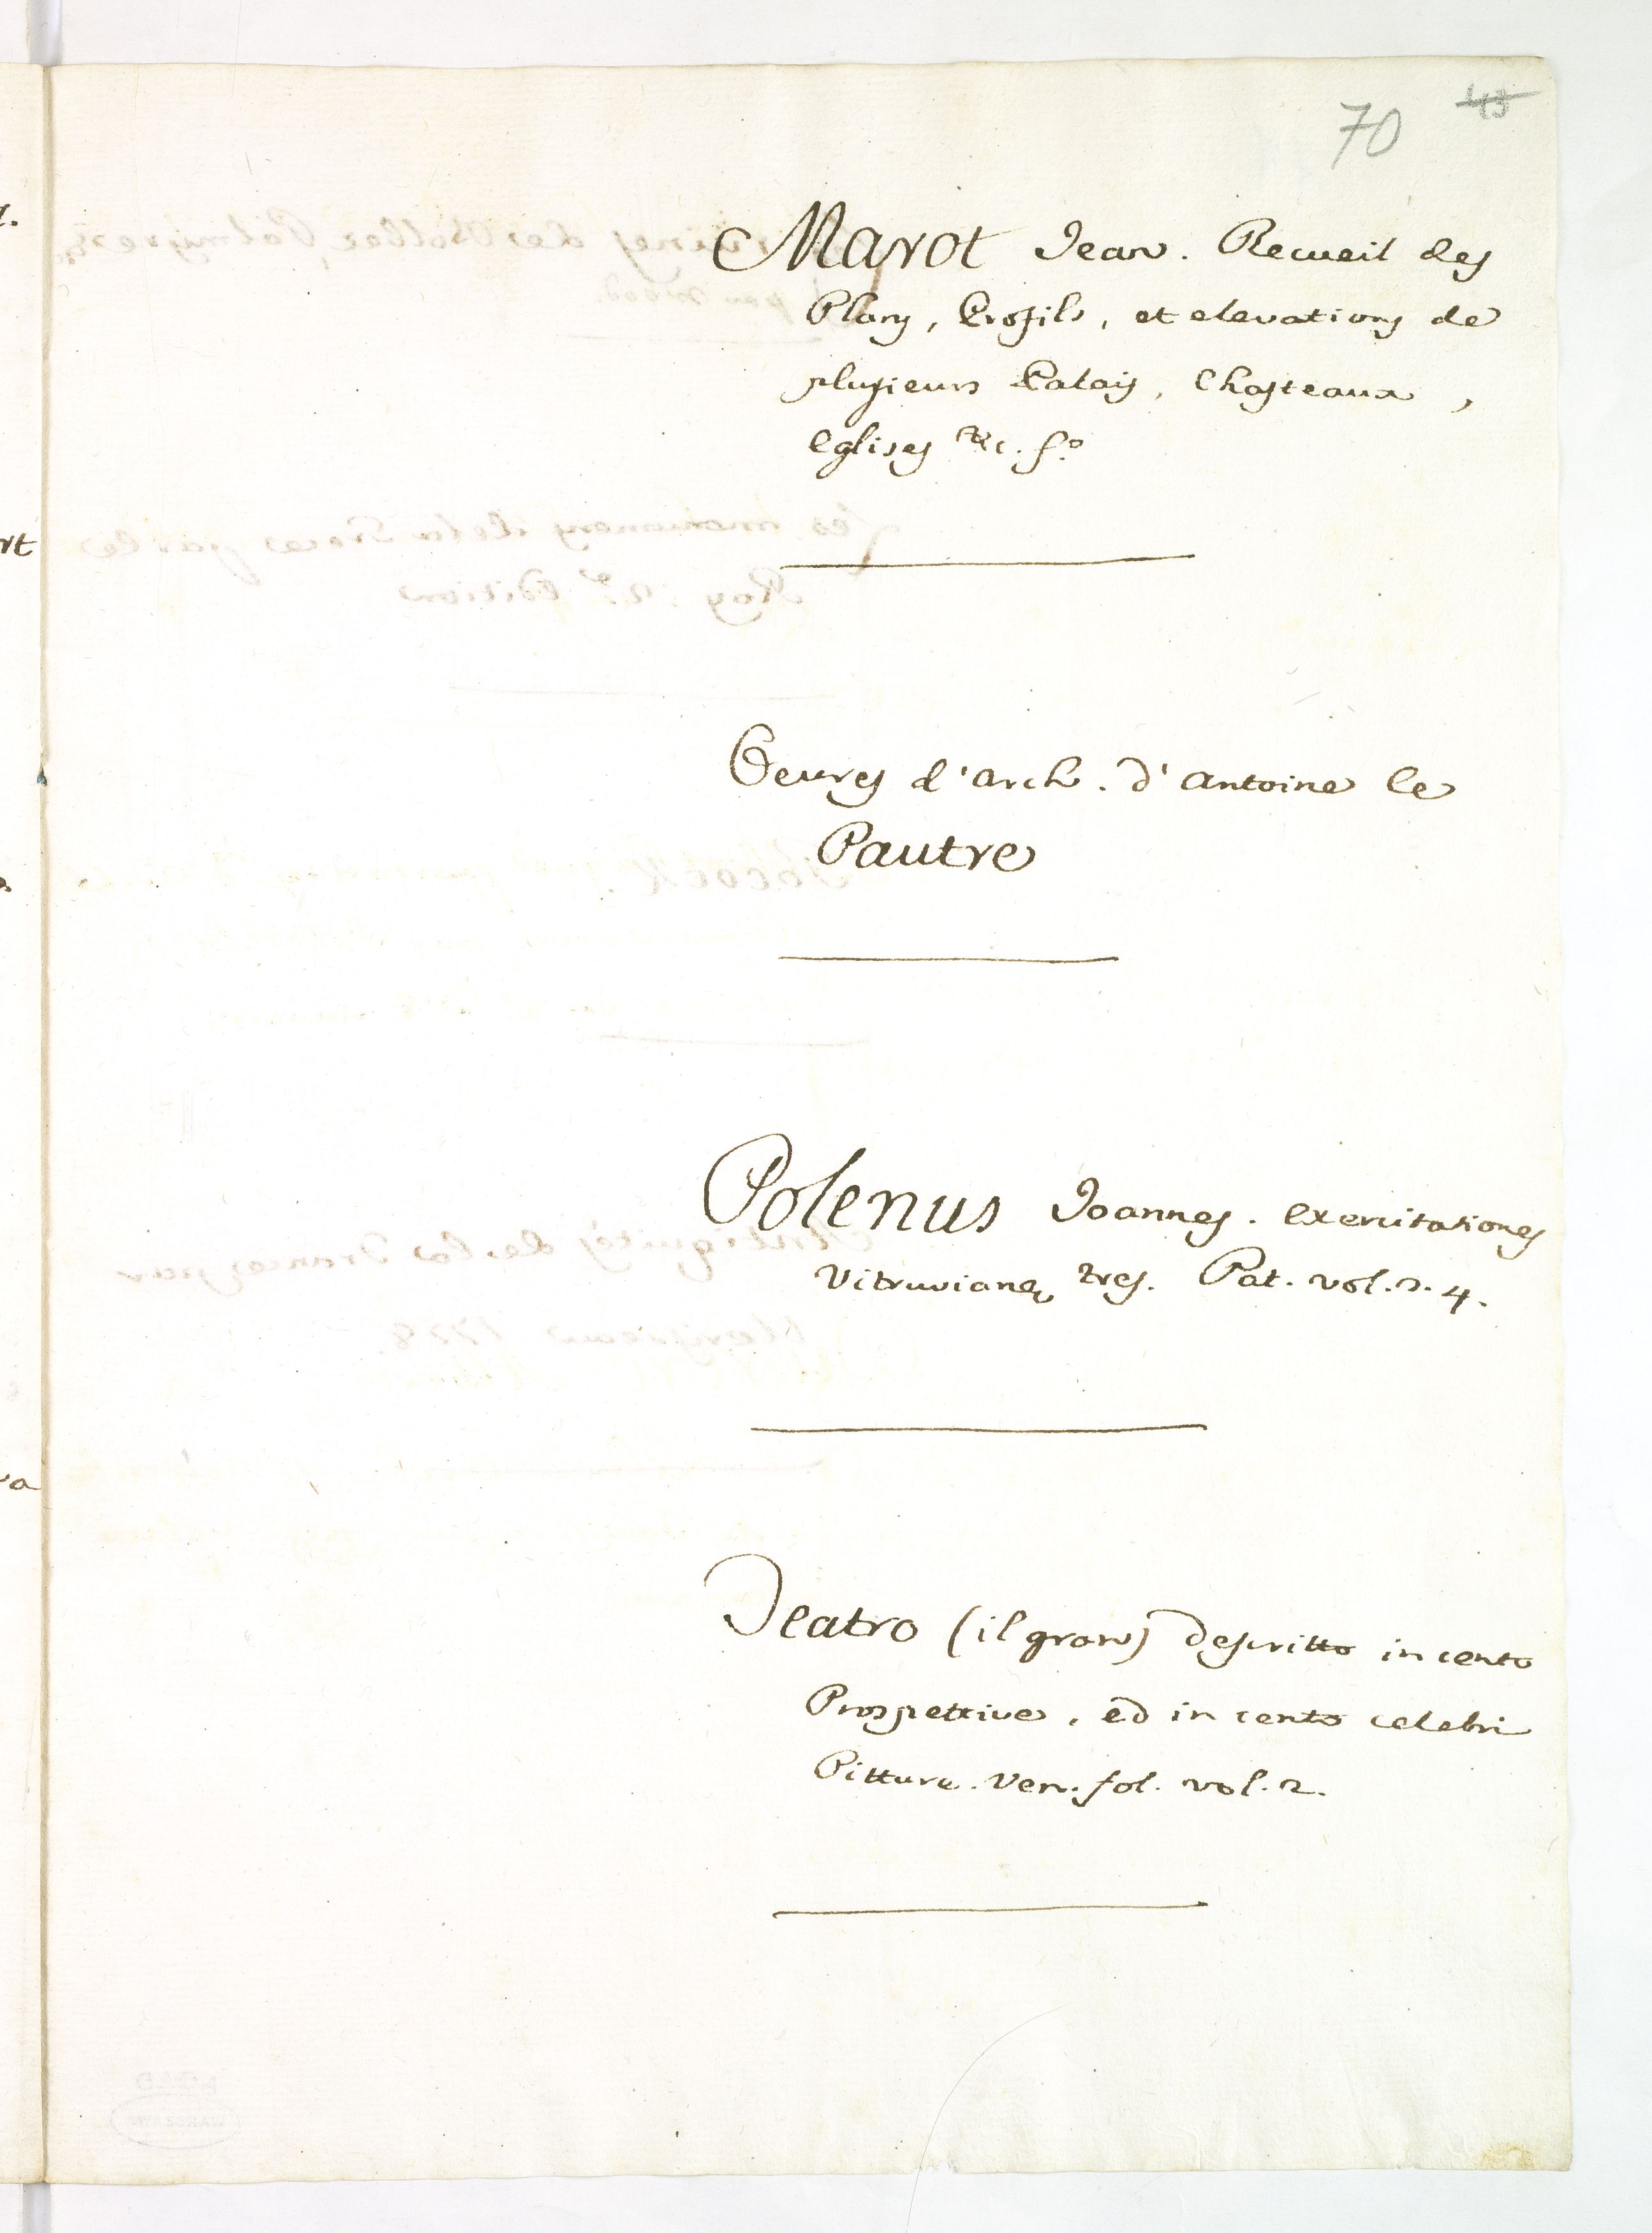 70 43
Marot Jean. Recueil des
Plans, Profils, et elevations de
plusieurs Palais, Chasteaux,
Eglises &c. fo
Oeuvres d'arch. d'Antoine le
Pautre
Polenus Joannes. exercitationes
Vitruvianę tres. Pat. vol. 2. 4.
Teatro (il gran) descritto in cento
Prospettive, ed in cento celebri
Pitture. Ven. fol. vol. 2.